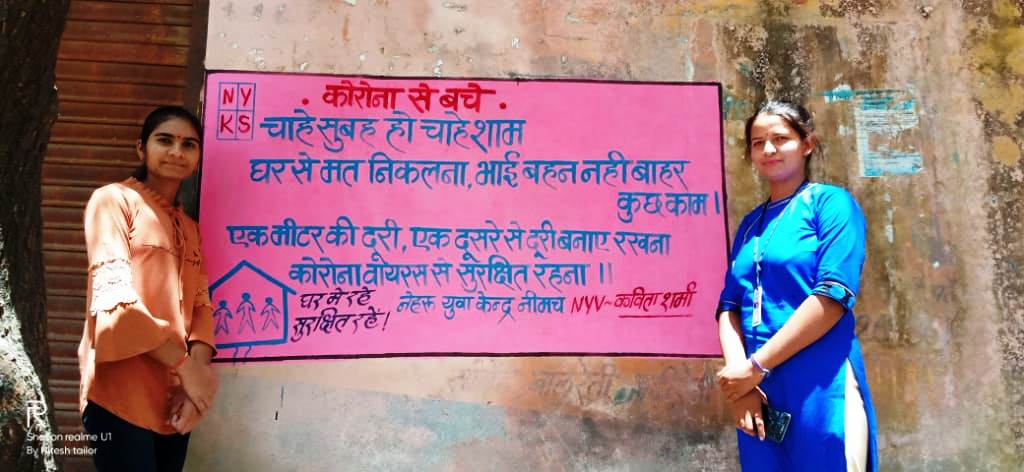 NY
KS
. कोरोना से बचे .
चाहे सुबह हो चाहे शाम
घर से मत निकलना, भाई बहन नही बाहर
कुछ काम ।
एक मीटर की दूरी, एक दूसरे से दूरी बनाए रखना
कोरोना वायरस से सुरक्षित रहना ।।
घर मे रहे
सुरक्षित रहें !
नेहरू युवा केन्द्र नीमच NYV~ कविता शर्मा
R
Shot on realme U1
By Rikesh tailor